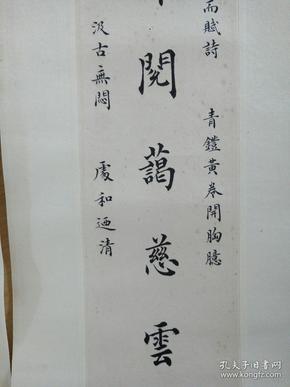 而賦詩 青鐙黃卷開胸臆
閱藹慈雲
汲古無悶 處和迺清
孔夫子旧书网